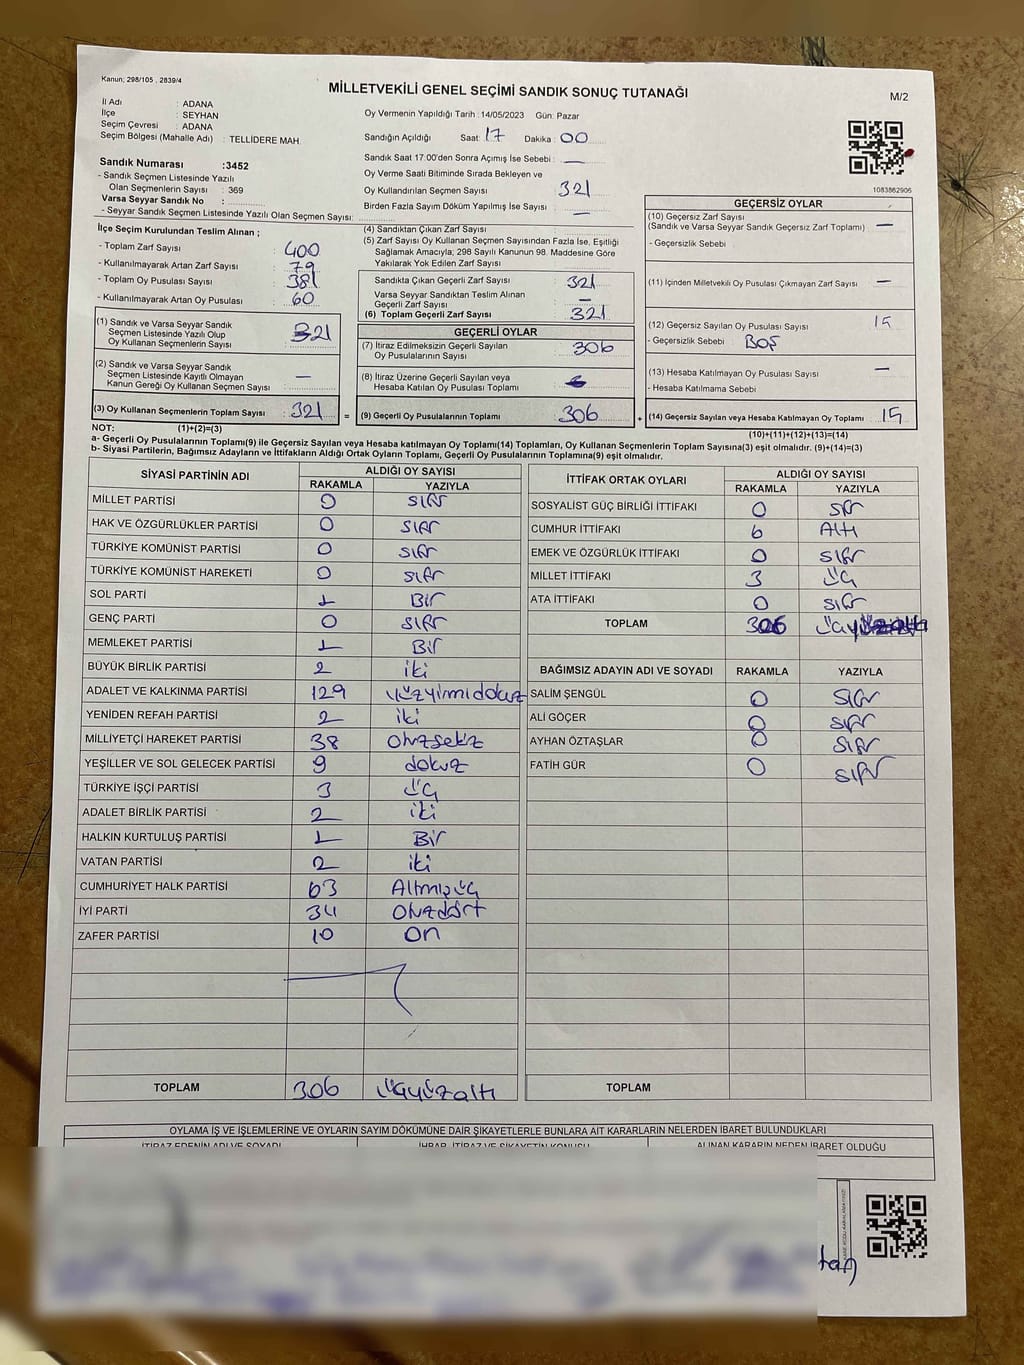 Kanun; 298/105 , 2839/4
MİLLETVEKİLİ GENEL SEÇİMİ SANDIK SONUÇ TUTANAĞI
M/2
İl Adı : ADANA
İlçe : SEYHAN
Seçim Çevresi : ADANA
Seçim Bölgesi (Mahalle Adı) : TELLİDERE MAH.
Sandık Numarası :3452
- Sandık Seçmen Listesinde Yazılı
Olan Seçmenlerin Sayısı : 369
Varsa Seyyar Sandık No :
- Seyyar Sandık Seçmen Listesinde Yazılı Olan Seçmen Sayısı:
Oy Vermenin Yapıldığı Tarih :14/05/2023 Gün: Pazar
Sandığın Açıldığı Saat: 17 Dakika : 00
Sandık Saat 17:00'den Sonra Açımış İse Sebebi : —
Oy Verme Saati Bitiminde Sırada Bekleyen ve
Oy Kullandırılan Seçmen Sayısı 321
Birden Fazla Sayım Döküm Yapılmış İse Sayısı —
1083862906
İlçe Seçim Kurulundan Teslim Alınan ;
- Toplam Zarf Sayısı : 400
- Kullanılmayarak Artan Zarf Sayısı : 79
- Toplam Oy Pusulası Sayısı : 381
- Kullanılmayarak Artan Oy Pusulası : 60
(1) Sandık ve Varsa Seyyar Sandık
Seçmen Listesinde Yazılı Olup
Oy Kullanan Seçmenlerin Sayısı : 321
(2) Sandık ve Varsa Seyyar Sandık
Seçmen Listesinde Kayıtlı Olmayan
Kanun Gereği Oy Kullanan Seçmen Sayısı : —
(3) Oy Kullanan Seçmenlerin Toplam Sayısı : 321 =
(4) Sandıktan Çıkan Zarf Sayısı :
(5) Zarf Sayısı Oy Kullanan Seçmen Sayısından Fazla İse, Eşitliği
Sağlamak Amacıyla; 298 Sayılı Kanunun 98. Maddesine Göre
Yakılarak Yok Edilen Zarf Sayısı :
Sandıkta Çıkan Geçerli Zarf Sayısı 321
Varsa Seyyar Sandıktan Teslim Alınan
Geçerli Zarf Sayısı —
(6) Toplam Geçerli Zarf Sayısı : 321
GEÇERLİ OYLAR
(7) İtiraz Edilmeksizin Geçerli Sayılan
Oy Pusulalarının Sayısı : 306
(8) İtiraz Üzerine Geçerli Sayılan veya
Hesaba Katılan Oy Pusulası Toplamı :
(9) Geçerli Oy Pusulalarının Toplamı 306 +
GEÇERSİZ OYLAR
(10) Geçersiz Zarf Sayısı
(Sandık ve Varsa Seyyar Sandık Geçersiz Zarf Toplamı) : —
- Geçersizlik Sebebi
(11) İçinden Milletvekili Oy Pusulası Çıkmayan Zarf Sayısı : —
(12) Geçersiz Sayılan Oy Pusulası Sayısı : 15
- Geçersizlik Sebebi BOŞ
(13) Hesaba Katılmayan Oy Pusulası Sayısı : —
- Hesaba Katılmama Sebebi
(14) Geçersiz Sayılan veya Hesaba Katılmayan Oy Toplamı : 15
NOT: (1)+(2)=(3)
(10)+(11)+(12)+(13)=(14)
a- Geçerli Oy Pusulalarının Toplamı(9) ile Geçersiz Sayılan veya Hesaba katılmayan Oy Toplamı(14) Toplamları, Oy Kullanan Seçmenlerin Toplam Sayısına(3) eşit olmalıdır. (9)+(14)=(3)
b- Siyasi Partilerin, Bağımsız Adayların ve İttifakların Aldığı Ortak Oyların Toplamı, Geçerli Oy Pusulalarının Toplamına(9) eşit olmalıdır.
SİYASİ PARTİNİN ADI ALDIĞI OY SAYISI
RAKAMLA YAZIYLA
MİLLET PARTİSİ 0 sıfır
HAK VE ÖZGÜRLÜKLER PARTİSİ 0 sıfır
TÜRKİYE KOMÜNİST PARTİSİ 0 sıfır
TÜRKİYE KOMÜNİST HAREKETİ 0 sıfır
SOL PARTİ 1 Bir
GENÇ PARTİ 0 sıfır
MEMLEKET PARTİSİ 1 Bir
BÜYÜK BİRLİK PARTİSİ 2 iki
ADALET VE KALKINMA PARTİSİ 129 yüzyirmidokuz
YENİDEN REFAH PARTİSİ 2 iki
MİLLİYETÇİ HAREKET PARTİSİ 38 otuzsekiz
YEŞİLLER VE SOL GELECEK PARTİSİ 9 dokuz
TÜRKİYE İŞÇİ PARTİSİ 3 üç
ADALET BİRLİK PARTİSİ 2 iki
HALKIN KURTULUŞ PARTİSİ 1 Bir
VATAN PARTİSİ 2 iki
CUMHURİYET HALK PARTİSİ 63 Altmışüç
İYİ PARTİ 34 otuzdört
ZAFER PARTİSİ 10 on
TOPLAM 306 üçyüzaltı
İTTİFAK ORTAK OYLARI ALDIĞI OY SAYISI
RAKAMLA YAZIYLA
SOSYALİST GÜÇ BİRLİĞİ İTTİFAKI 0 sıfır
CUMHUR İTTİFAKI 6 Altı
EMEK VE ÖZGÜRLÜK İTTİFAKI 0 sıfır
MİLLET İTTİFAKI 3 üç
ATA İTTİFAKI 0 sıfır
TOPLAM 306
BAĞIMSIZ ADAYIN ADI VE SOYADI RAKAMLA YAZIYLA
SALİM ŞENGÜL 0 sıfır
ALİ GÖÇER 0 sıfır
AYHAN ÖZTAŞLAR 0 sıfır
FATİH GÜR 0 sıfır
TOPLAM
OYLAMA İŞ VE İŞLEMLERİNE VE OYLARIN SAYIM DÖKÜMÜNE DAİR ŞİKAYETLERLE BUNLARA AİT KARARLARIN NELERDEN İBARET BULUNDUKLARI
İTİRAZ EDENİN ADI VE SOYADI İHBAR, İTİRAZ VE ŞİKAYETİN KONUSU ALINAN KARARIN NEDEN İBARET OLDUĞU